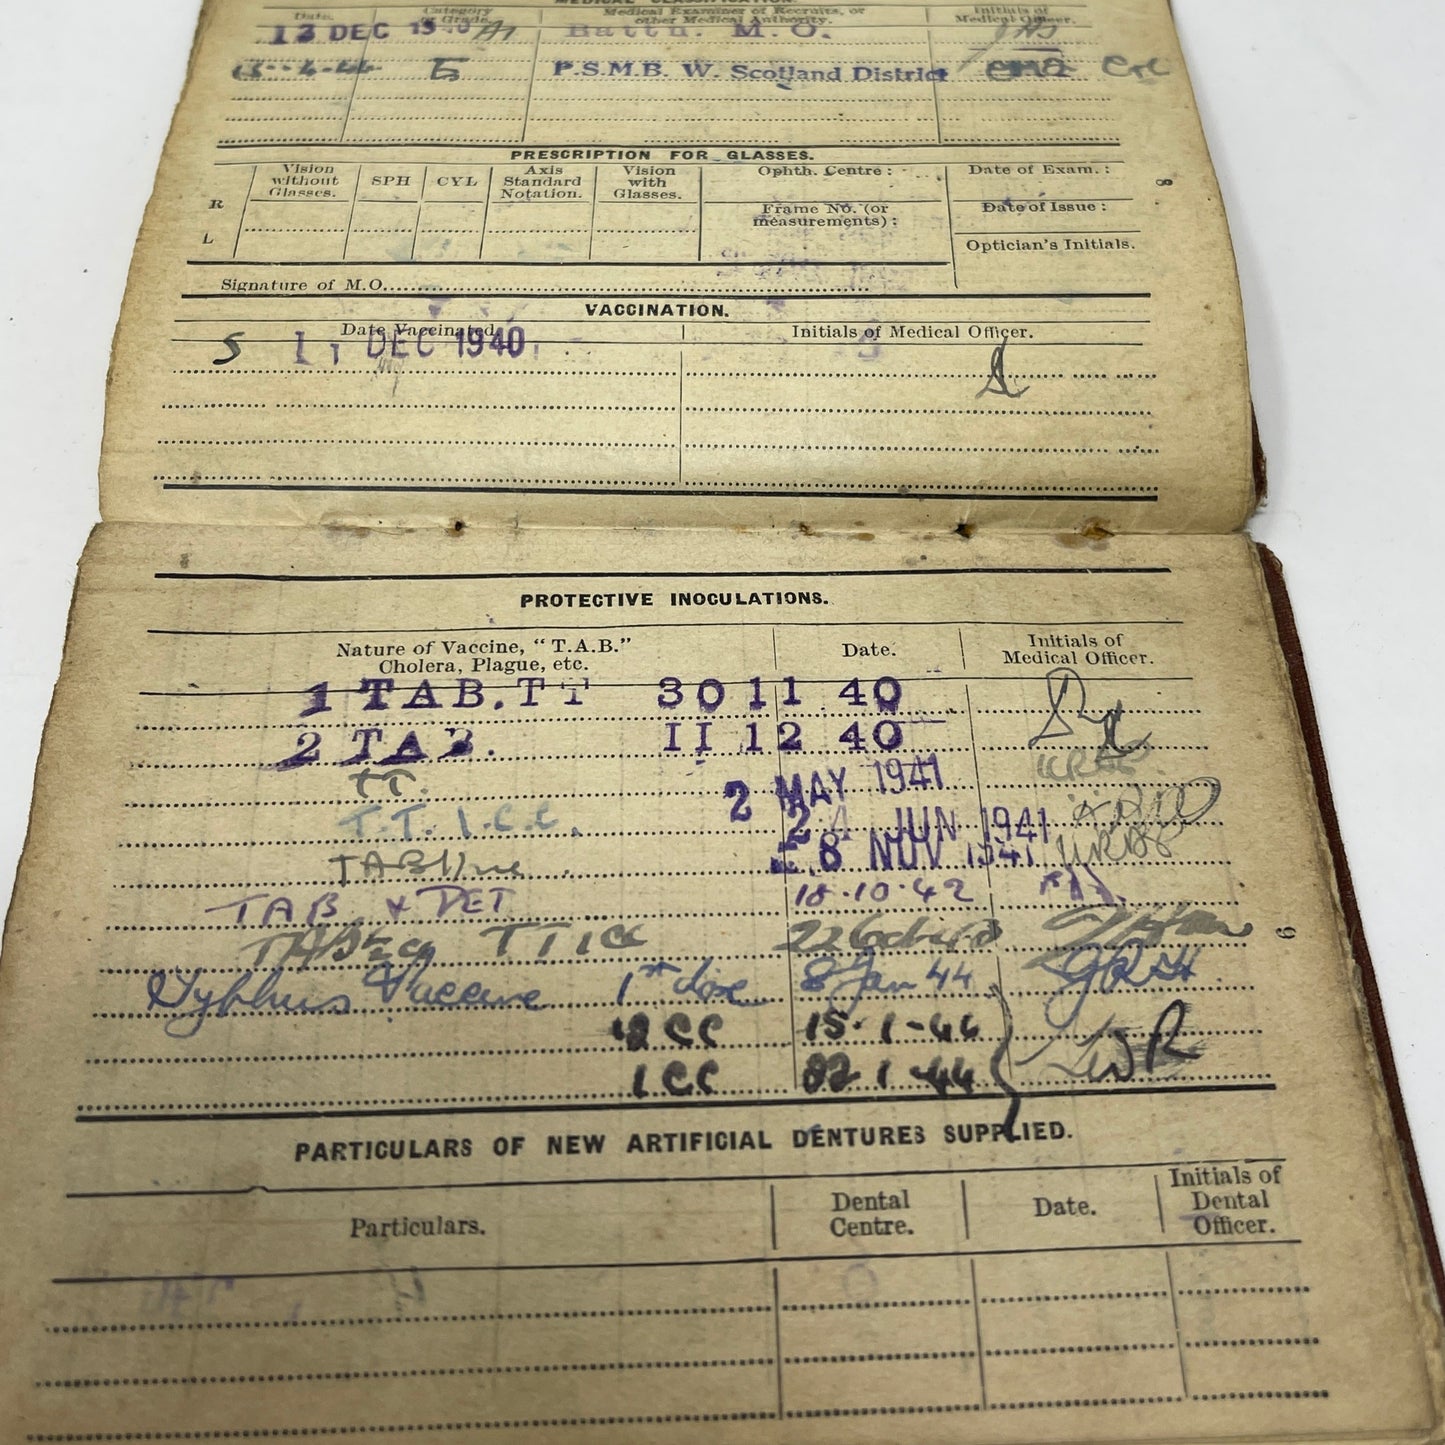 MEDICAL CLASSIFICATION.
Date. Category or Grade. Medical Examiner of Recruits, or other Medical Authority. Initials of Medical Officer.
13 DEC 1940 A1 Battn. M.O.
4-44 E P.S.M.B. W. Scotland District
PRESCRIPTION FOR GLASSES.
Vision without Glasses. SPH CYL Axis Standard Notation. Vision with Glasses. Ophth. Centre : Date of Exam. :
R Frame No. (or measurements) : Date of Issue :
L Optician's Initials.
Signature of M.O.
8
VACCINATION.
Date Vaccinated. Initials of Medical Officer.
S 11 DEC 1940
PROTECTIVE INOCULATIONS.
Nature of Vaccine, "T.A.B." Cholera, Plague, etc. Date. Initials of Medical Officer.
1 TAB.TT 30 11 40
2 TAB. II 12 40
TT. 2 MAY 1941
T.T. 1.C.C. 24 JUN 1941
TAB 28 NOV 1941
TAB & DET 18.10.42
TAB TT 1cc
Typhus Vaccine 1st dose 8 Jan 44 GRH
CC 15-1-44
1 CC 1-44
9
PARTICULARS OF NEW ARTIFICIAL DENTURES SUPPLIED.
Particulars. Dental Centre. Date. Initials of Dental Officer.